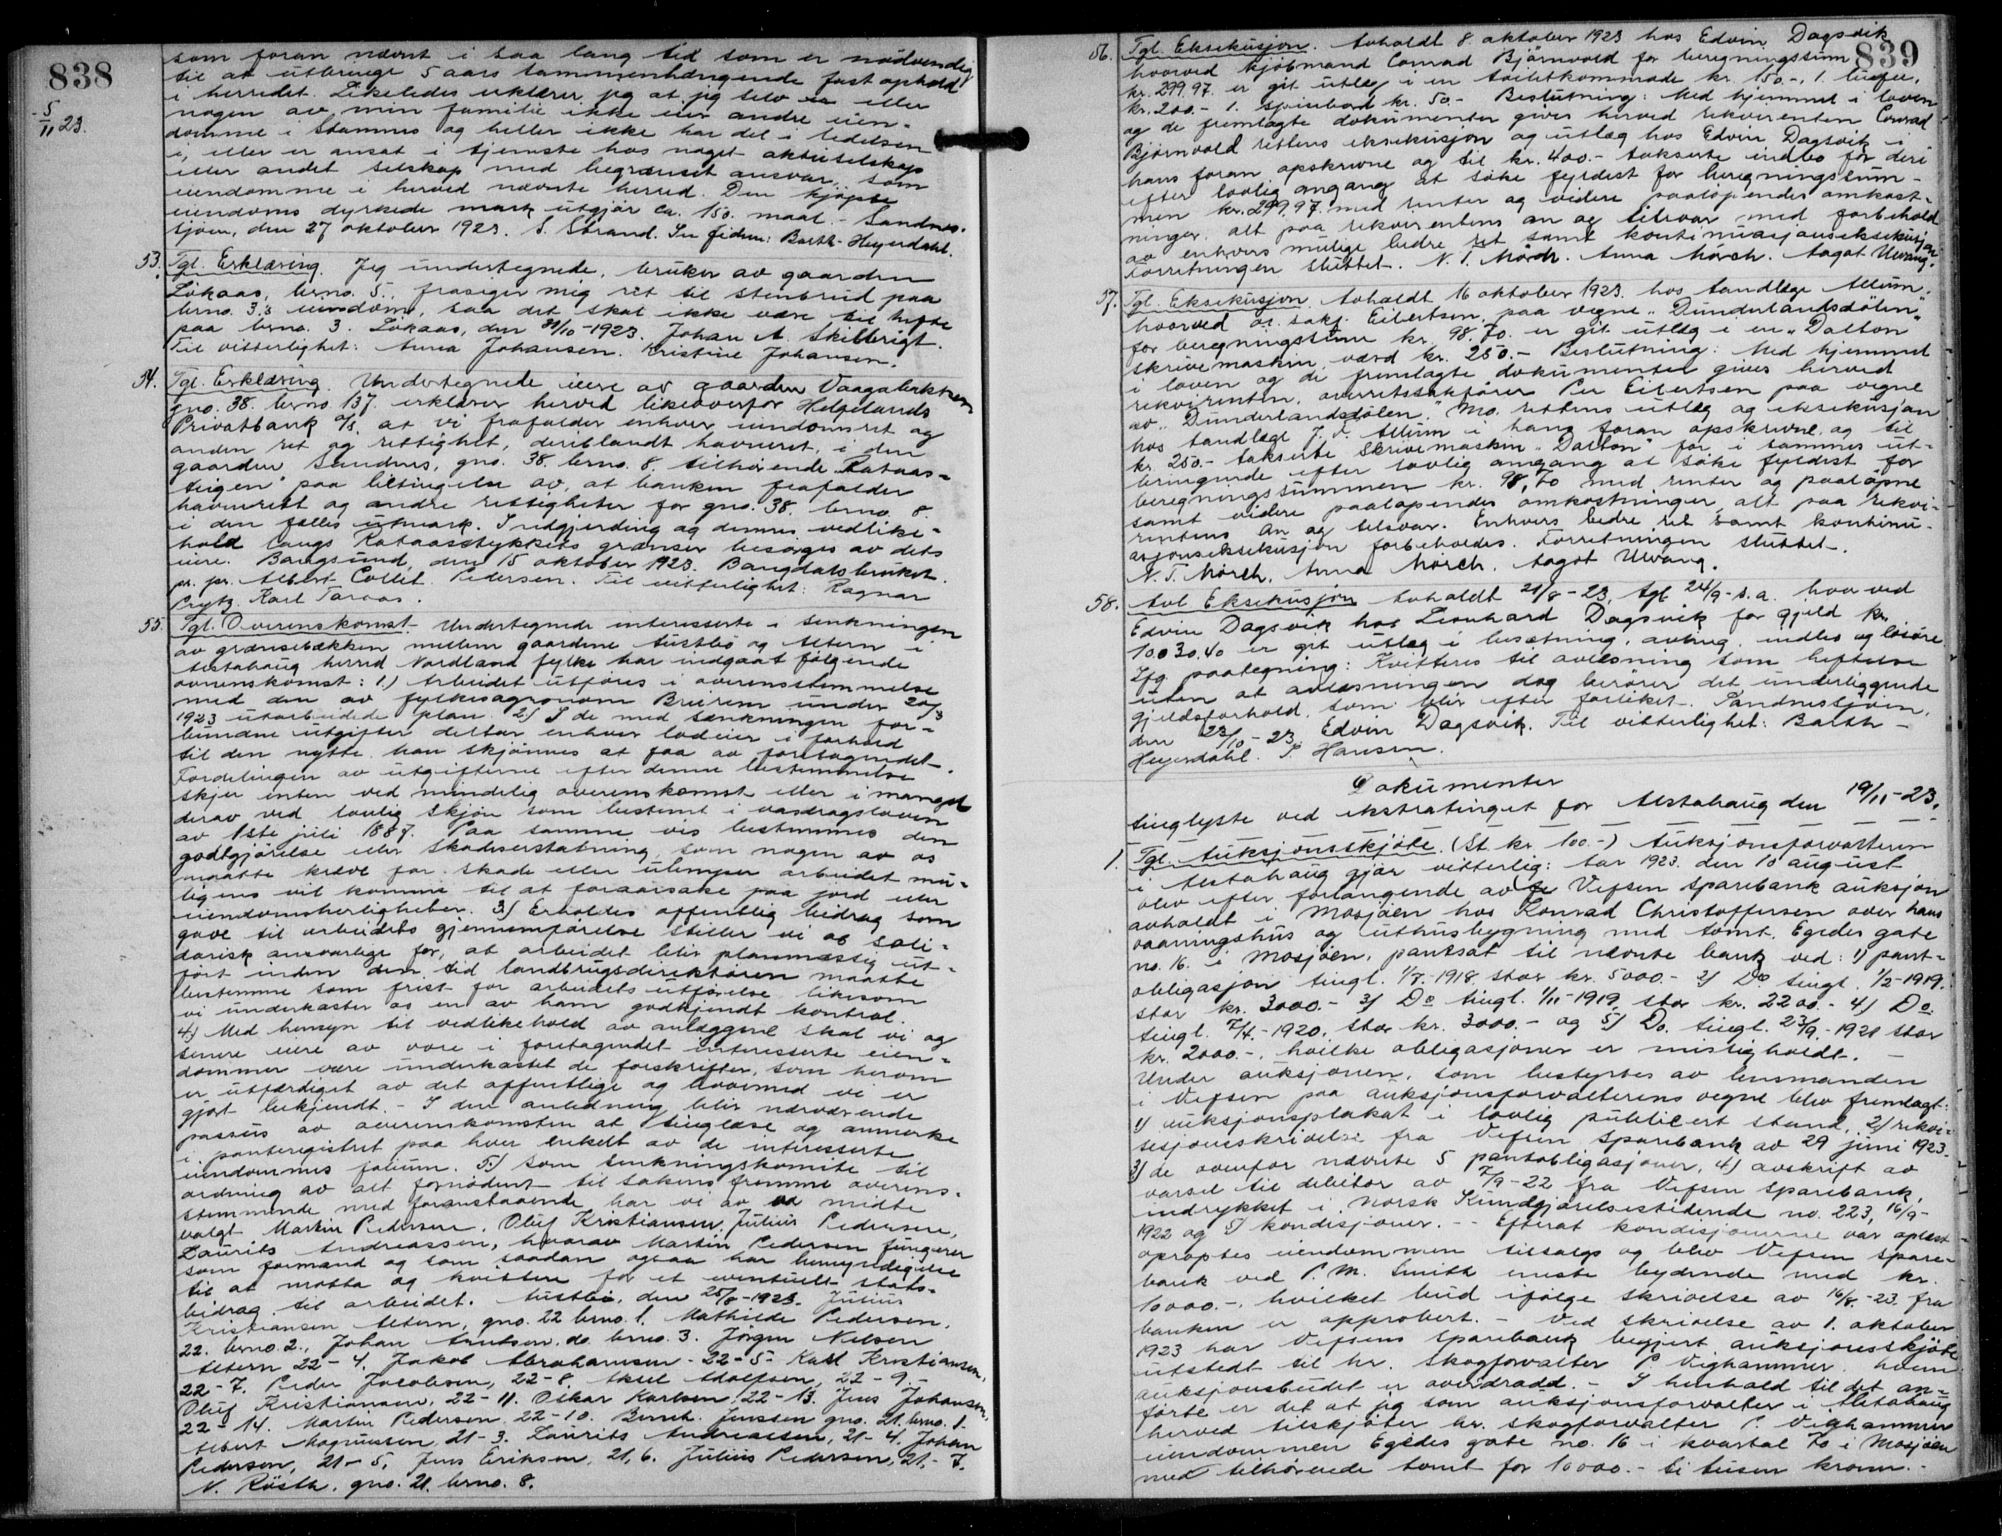 838
5/11 23.
som foran nævnt i saa lang tid som er nödvendig
til at utbruge 5 aars sammenhængende fast ophold
i herredet. Likeledes erklærer jeg at jeg selv eller
nogen av min familie ikke eier andre eien-
domme i Stamnes og heller ikke har del i ledelsen
i, eller er ansat i tjeneste hos noget aktieselskap
eller andet selskap med begrænset ansvar, som
eiendomme i herved nævnte herred. Den kjöpte
eiendoms dyrkede mark utgjör ca. 150 maal. - Sandnes-
sjöen, den 27 oktober 1923. S. Strand. Barth-Heyerdahl.
53. Tgl. Erklæring. Jeg undertegnede, bruker av gaarden
Lökaas, brno. 5, frasiger mig ret til stenbrud paa
brno. 3.s eiendom, saa det skal ikke være til hefte
paa brno. 3. Lökaas, den 20/10-1923. Johan A. Skilbrigt.
Til vitterlighet: Anna Johansen. Kristine Johansen.
54. Tgl. Erklæring. Undertegnede eiere av gaarden Vaagabakken
gno. 38. brno 137. erklærer herved likeoverfor Helgelands
Privatbank a/s at vi frafalder enhver eiendomsret og
anden ret og rettighet, deriblandt havneret, i den
gaarden Sandnes, gno. 38. brno. 8. tilhörende Rataas-
teigen" paa betingelse av, at banken frafalder
havneret og andre rettigheter for gno. 38. brno. 8.
i den fælles utmark. Indgjerding og dennes vedlike-
hold langs Rataasstykkets grænser besörges av dets
eiere. Baagsund, den 15 oktober 1923. Bangdalsbruket.
pr. pr. Albert Collet. Pedersen. Til vitterlighet: Ragnar
Prytz. Karl Taraas.
55. Tgl. Overenskomst. Undertegnede interesserte i senkningen
av grænsebækken mellem gaardene Austbö og Altern i
Alstahaug herred Nordland fylke har indgaat følgende
overenskomst: 1.) Arbeidet utföres i overensstemmelse
med den av fylkesagronom Breirem under 20/3
1923 utarbeidede plan. 2.) I de med sænkningen for-
bundne utgifter deltar enhver lodeier i forhold
til den nytte han skjönnes at faa av foretagendet.
Fordelingen av utgifterne efter denne bestemmelse
skjer enten ved mindelig overenskomst eller i mangel
derav ved lovlig skjön som bestemt i vasdragsloven
av 1ste juli 1887. Paa samme vis bestemmes den
godtgjörelse eller skadeserstatning, som nogen av os
maatte kræve for skade eller ulemper arbeidet mu-
ligens vil komme til at foraarsake paa jord eller
eiendomsherligheter. 3.) Erholdes offentlig bidrag som
gave til arbeidets gjennemförelse stiller vi os soli-
darisk ansvarlige for, at arbeidet blir planmæssig ut-
fört inden den tid landbruksdirektören maatte
bestemme som frist for arbeidets utförelse likesom
vi underkaster os en av ham godkjendt kontrol.
4.) Med hensyn til vedlikehold av anlæggene skal vi og
senere eiere av vore i foretagendet interesserte eien-
dommer være underkastet de forskrifter, som herom
er utfærdiget av det offentlige og hvormed vi er
gjort bekjendt. - I den anledning blir nærværende
passus av overenskomsten at tinglæse og anmerke
i panteregistret paa hver enkelt av de interesserte
eiendommes folium. 5.) Som senkningskomite til
ordning av alt fornödent til sakens fremme overens-
stemmende med foranstaaende har vi av vor midte
valgt Martin Pedersen, Oluf Kristiansen, Julius Pedersen,
Laurits Andreassen, hvorav Martin Pedersen fungerer
som formand og som saadan ogsaa har bemyndigelse
til at motta og kvittere for et eventuelt stats-
bidrag til arbeidet. Austbö, den 25/8-1923. Julius
Kristiansen Altern, gno. 22 brno. 1. Mathilde Pedersen,
22. brno. 2., Johan Arntsen, do. brno. 3. Jörgen Nilsen
Altern 22-4. Jakob Abrahamsen. 22-5. Karl Kristiansen,
22-7. Peder Jacobsen, 22-8. Aksel Adolfsen, 22-9.-
Oluf Kristiansen, 22-11. Oskar Karlsen, 22-13. Jens Johansen,
22-14. Martin Pedersen. 22-10. Bernt. Jenssen gno. 21. brno. 1.
Albert Magnussen, 21-3. Laurits Andreassen, 21-4. Johan
Pedersen, 21-5, Jens Eriksen, 21,6. Julius Pedersen, 21.-7.
N. Rösth. gno. 21. brno. 8.
839
56. Tgl. Eksekusjon. Avholdt 8 oktober 1923 hos Edvin Dagsvik
hvorved kjöbmand Conrad Björnvold for beregningssum
kr. 299.97. er git utlæg i en toiletkommode kr. 150.-, 1.
kr. 200.- 1. spisebord kr. 50.- Beslutning: Med hjemmel i loven
og de fremlagte dokumenter gives herved rekvirenten Conrad
Björnvold rettens eksekusjon og utlæg hos Edvin Dagsvik i
hans foran opskrevne og til kr. 400.- takserte indbo for deri
efter lovlig omgang at söke fyldest for beregningssum-
men kr. 299.97. med renter og videre paalöpende omkost-
ninger, alt paa rekvirentens an og tilsvar med forbehold
av enhvers mulige bedre ret samt kontinuasjonseksekusjon.
Forretningen sluttet. N. T. Mörch. Anna Mörch. Aagot Ulvang.
57. Tgl. Eksekusjon. Avholdt 16 oktober 1923. hos tandlæge Allum.
hvorved or. sakf. Eilertsen paa vegne "Dunderlandsdölen"
for beregningssum kr. 98.70. er git utlæg i en "Dalton"
skrivemaskin værd kr. 250.- Beslutning: Med hjemmel
i loven og de fremlagte dokumenter gives herved
rekvirenten, overretssakförer Per Eilertsen paa vegne
av "Dunderlandsdölen." Mo. rettens utlæg og eksekusjon
hos tandlæge J. V. Allum i hans foran opskrevne og til
kr. 250.- takserte skrivemaskin "Dalton" for i sammes ut-
bringende efter lovlig omgang at söke fyldest for
beregningssummen kr. 98,70 med renter og paalöpne
samt videre paalöpendes omkostninger, alt paa rekvi-
rentens an og tilsvar. Enhvers bedre ret samt kontinu-
asjonseksekusjon forbeholdes. Forretningen sluttet.
N. T. Mörch. Anna Mörch. Aagot Ulvang.
58. Avl. Eksekusjon Avholdt 21/8-23, tgl. 24/9-s.a. hvorved
Edvin Dagsvik hos Leonhard Dagsvik for gjeld kr.
10030.40 er git utlæg i besætning, avling, indbo og lösöre.
Ifg. paategning: Kvitteres til avlæsning som heftelse
uten at avlæsningen dog berörer det underliggende
gjeldsforhold, som blir efter forliket. Sandnessjöen,
den 22/10-23. Edvin Dagsvik. Til vitterlighet: Barth-
Heyerdahl. P. Hansen.
Dokumenter
tinglyste ved ekstratinget for Alstahaug den 19/11-23.
1. Tgl. Auksjonsskjöte. (St. kr. 100.-) Auksjonsforvalteren
i Alstahaug gjör vitterlig: Aar 1923. den 10 august
blev efter forlangende av Vefsen Sparebank auksjon
avholdt i Mosjöen hos Konrad Christoffersen over hans
vaaningshus og uthusbygning med tomt. Egedes gate
no. 16. i Mosjöen, pantsat til nævnte bank ved: 1) pant-
obligasjon tingl. 1/8-1918 stor kr. 5000.- 2) Do tingl. 1/2-1919.
stor kr. 3000.- 3) Do tingl. 1/11-1919. stor kr. 2200.- 4) Do
tingl. 7/4-1920. stor kr. 3000.- og 5) Do. tingl. 23/9-1921 stor
kr. 2000.-. hvilke obligasjoner er misligholdt. -
Under auksjonen, som bestyrtes av lensmanden
i Vefsen paa auksjonsforvalterens vegne blev fremlagt:
1) auksjonsplakat i lovlig publicert stand, 2) rekvi-
sisjonsskrivelse fra Vefsen Sparebank av 29 juni 1923.
3) de ovenfor nævnte 5 pantobligasjoner, 4) avskrift av
varsel til debitor av 7/9-22 fra Vefsen Sparebank,
indrykket i Norsk Kundgjörelsestidende no. 223, 16/9-
1922 og 5) kondisjoner. - - Efterat kondisjonerne var oplæst
opraptes eiendommen tilsalgs og blev Vefsen Spare-
bank ved P. M. Smith meste bydende med kr.
10000.-, hvilket bud ifölge skrivelse av 16/8-23. fra
banken er approbert. - Ved skrivelse av 1. oktober
1923 har Vefsens Sparebank begjert auksjonsskjöte
utstedt til hr. Skogforvalter P. Vighammer hvem
auksjonsbudet er overdradd. - I henhold til det an-
förte er det at jeg som auksjonsforvalter i Alstahaug
herved tilskjöter hr. skogforvalter P. Vighammer
eiendommen Egedes gate no. 16 i kvartal 70 i Mosjöen
med tilhörende tomt for 10000.- ti tusen kroner.-